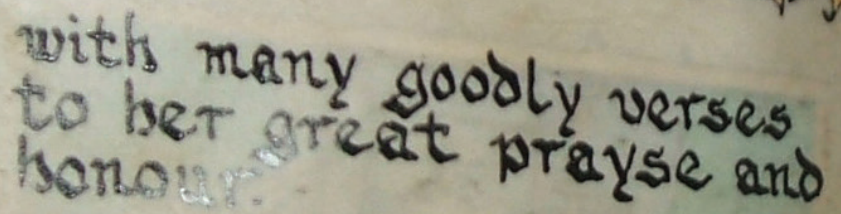 with many goodly verses
to her great prayse and
honour.